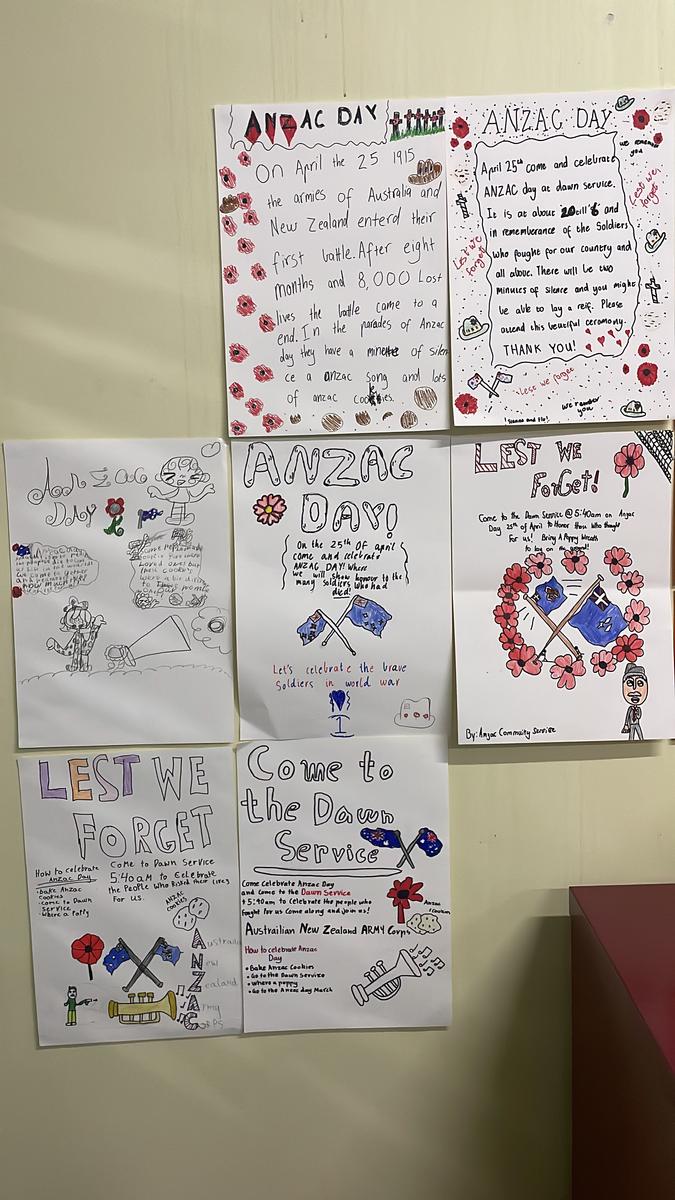 ANZAC DAY
On April the 25 1915
the armies of Australia and
New Zealand enterd their
first battle. After eight
months and 8,000 Lost
lives the battle came to a
end. In the parades of Anzac
day they have a minute of silen
ce a anzac song and lots
of anzac cookies.
ANZAC DAY
we remember
you
April 25th come and celebrate
ANZAC day at dawn service.
It is at about and
in rememberance of the Soldiers
who fought for our country and
all above. There will be two
minutes of silence and you might
be able to lay a reif. Please
attend this beutiful ceremony.
THANK YOU!
Lest we
forget
Lest we
forget
Lest we forget
we rember
you
Anzac
DAY
ANZAC
DAY!
On the 25th Of April
come and celebrate
ANZAC DAY! Where
we will show honour to the
many soldiers who had
died!
Let's celebrate the brave
Soldiers in world war
I
LEST WE
ForGet!
Come to the Dawn Service @ 5:40am on Anzac
Day 25th of April to Honor those who fought
For us! Bring A Poppy Wreath
to lay on the ground!
By: Anzac Community Service
LEST WE
FORGET
How to celebrate
Anzac Day
•Bake Anzac
Cookies
•Come to Dawn
Service
•Where a Poppy
Come to Dawn Service
5:40am to Celebrate
the People who Risked their lives
For us.
ANZAC
Cookies
Australia
New
Zealand
Army
Corps
Come to
the Dawn
Service
Come Celebrate Anzac Day
and Come to the Dawn Service
5:40am to Celebrate the people who
fought for us Come along and join us!
Anzac
Cookies
Austrailian New Zealand ARMY Corps
How to celebrate Anzac
Day
• Bake Anzac Cookies
• Go to the Dawn Service
• Where a poppy
• Go to the Anzac day March